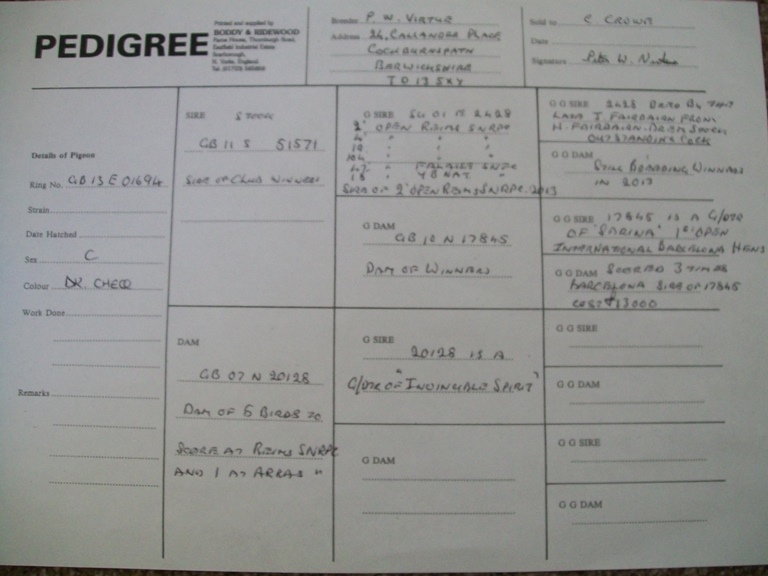 PEDIGREE
Printed and supplied by
BODDY & RIDEWOOD
Eastfield Industrial Estate
Scarborough,
N. Yorks, England.
Breeder P. W. VIRTUE
Address 24, CALLANDER PLACE
COCKBURNSPATH
BERWICKSHIRE
TD13 5XY
Sold to C CROWE
Date
Signature Peter W.
Details of Pigeon
Ring No. GB 13 E 01694
Strain
Date Hatched
Sex C
Colour DK. CHEQ
Work Done
Remarks
SIRE
GB 11 S 51571
SIRE OF CLUB WINNERS
DAM
GB 07 N 20128
DAM OF 5 BIRDS TO
SCORE AT REIMS SNRPC
AND 1 AT ARRAS "
G SIRE SU 01 B 2428
2 OPEN REIMS SNRPC
4 " "
10 " "
104 " "
47 SNFC
18 YB NAT. "
SIRE OF 2 OPEN REIMS SNRPC. 2013
G DAM
GB 10 N 17845
DAM OF WINNERS
G SIRE
20128 IS A
G/DTR OF "INVINCIBLE SPIRIT"
G DAM
G G SIRE 2428 BRED BY THE
LATE J. FAIRBAIRN FROM
H. FAIRBAIRN. REIMS
OUTSTANDING COCK
G G DAM
STILL BREEDING WINNERS
IN 2013
G G SIRE 17845 IS A G/DTR
OF 'SABINA' 1ST OPEN
INTERNATIONAL BARCELONA HENS
G G DAM SCORED 3 TIMES
BARCELONA SIRE OF 17845
COST £13000
G G SIRE
G G DAM
G G SIRE
G G DAM